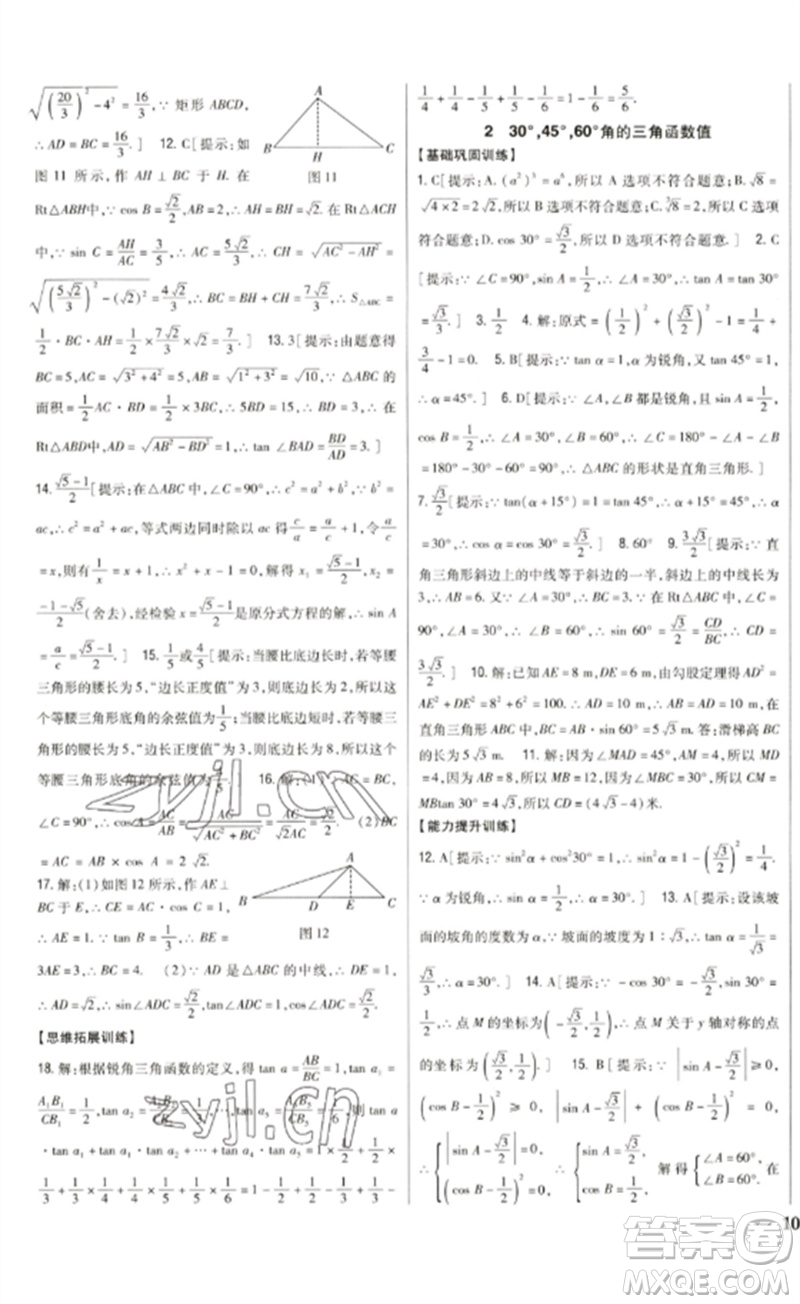 √((20/3)²-4²)=16/3,∵ 矩形 ABCD,
∴AD=BC=16/3.] 12.C[提示:如
图 11 所示,作 AH⊥BC 于 H. 在
Rt△ABH中,∵cos B=√2/2,AB=2,∴AH=BH=√2. 在 Rt△ACH
中,∵sin C=AH/AC=3/5,∴AC=5√2/3,∴CH=√(AC²-AH²)=
√((5√2/3)²-(√2)²)=4√2/3,∴BC=BH+CH=7√2/3,∴S△ABC=
1/2·BC·AH=1/2×7√2/3×√2=7/3.] 13.3[提示:由题意得
BC=5,AC=√(3²+4²)=5,AB=√(1²+3²)=√10,∵△ABC 的
面积=1/2AC·BD=1/2×3BC,∴5BD=15,∴BD=3,∴在
Rt△ABD中,AD=√(AB²-BD²)=1,∴tan∠BAD=BD/AD=3.]
14.(√5-1)/2[提示:在△ABC 中,∠C=90°,∴c²=a²+b²,∵b²=
ac,∴c²=a²+ac,等式两边同时除以 ac 得 c/a=a/c+1,令 a/c
=x,则有 1/x=x+1,∴x²+x-1=0,解得 x₁=(√5-1)/2,x₂=
(-1-√5)/2(舍去),经检验 x=(√5-1)/2 是原分式方程的解,∴sin A
=a/c=(√5-1)/2.] 15.1/5或4/5[提示:当腰比底边长时,若等腰
三角形的腰长为 5,“边长正度值”为 3,则底边长为 2,所以这
个等腰三角形底角的余弦值为1/5;当腰比底边短时,若等腰
三角形的腰长为 5,“边长正度值”为 3,则底边长为 8,所以这
个等腰三角形底角的余弦值为4/5.] 16.解:(1)∵AC=BC,
∠C=90°,∴cos A=AC/AB=AC/√(AC²+BC²)=AC/√2AC=√2/2. (2)BC
=AC=AB×cos A=2√2.
17.解:(1)如图 12 所示,作 AE⊥
BC于E,∴CE=AC·cos C=1,
∴AE=CE=1.∵tan B=1/3,∴BE=
3AE=3,∴BC=4. (2)∵AD 是△ABC 的中线,∴DE=1,
∴AD=√2,∴sin∠ADC=√2/2.
【思维拓展训练】
18.解:根据锐角三角函数的定义,得 tan a=AB/BC=1,tan a₁=
A₁B₁/CB₁=1/2,tan a₂=A₂B₂/CB₂=1/3,…,tan a₅=A₅B₅/CB₅=1/6,则 tan a
·tan a₁+tan a₁·tan a₂+…+tan a₄·tan a₅=1×1/2+1/2×
1/3+1/3×1/4+1/4×1/5+1/5×1/6=1-1/2+1/2-1/3+1/3-
A
B
H
C
图 11
A
B
D
E
C
图 12
1/4+1/4-1/5+1/5-1/6=1-1/6=5/6.
2 30°,45°,60°角的三角函数值
【基础巩固训练】
1.C[提示:A.(a²)³=a⁶,所以 A 选项不符合题意;B.√8=
√(4×2)=2√2,所以 B 选项不符合题意;C.∛8=2,所以 C 选项
符合题意;D.cos 30°=√3/2,所以 D 选项不符合题意.] 2.C
[提示:∵∠C=90°,sin A=1/2,∴∠A=30°,∴tan A=tan 30°
=√3/3.] 3.1/2 4.解:原式=(1/2)²+(√3/2)²-1=1/4+
3/4-1=0. 5.B[提示:∵tan α=1,α 为锐角,又 tan 45°=1,
∴α=45°.] 6.D[提示:∵∠A,∠B 都是锐角,且 sin A=1/2,
cos B=1/2,∴∠A=30°,∠B=60°,∴∠C=180°-∠A-∠B
=180°-30°-60°=90°,∴△ABC 的形状是直角三角形.]
7.√3/2[提示:∵tan(α+15°)=1,∴α+15°=45°,∴α
=30°,∴cos α=cos 30°=√3/2.] 8.60° 9.3√3/2[提示:∵直
角三角形斜边上的中线等于斜边的一半,斜边上的中线长为
3,∴AB=6. 又∵∠A=30°,∴BC=3. 在 Rt△ABC 中,∠C=
90°,∴∠B=90°-30°=60°,∴sin B=sin 60°=√3/2=CD/BC,∴CD=
3√3/2.] 10.解:已知 AE=8 m,DE=6 m,由勾股定理得 AD²=
AE²+DE²=8²+6²=100,∴AD=10 m,∴AB=AD=10 m. 在
直角三角形 ABC 中,BC=AB·sin 60°=5√3 m. 答:滑梯高
BC 为 5√3 m. 11.解:因为∠MAD=45°,AM=4,所以 MD
=4. 因为 AB=8,所以 MB=12. 因为∠MBC=30°,所以 CM=
MBtan 30°=4√3,所以 CD=(4√3-4)米.
【能力提升训练】
12.A[提示:∵sin²α+cos²30°=1,∴sin²α=1-(√3/2)²=1/4.
∵α 为锐角,∴sin α=1/2,∴α=30°.] 13.A[提示:设该坡
面的坡角的度数为 α,∵坡面的坡度为 1∶√3,∴tan α=1/√3=
√3/3,∴α=30°.] 14.A[提示:∵-cos 30°=-√3/2,sin 30°=
1/2,∴点 M 的坐标为(-√3/2,1/2),∴点 M 关于 y 轴对称的点
的坐标为(√3/2,1/2).] 15.B[提示:∵|sin A-√3/2|≥0,
(cos B-1/2)²≥0,|sin A-√3/2|+(cos B-1/2)²=0,
∴{|sin A-√3/2|=0,(cos B-1/2)²=0, ∴{sin A=√3/2,cos B=1/2, 解得{∠A=60°,∠B=60°. 在
10
zyjl.cn
zyjl.cn
答案卷
MXQE.COM